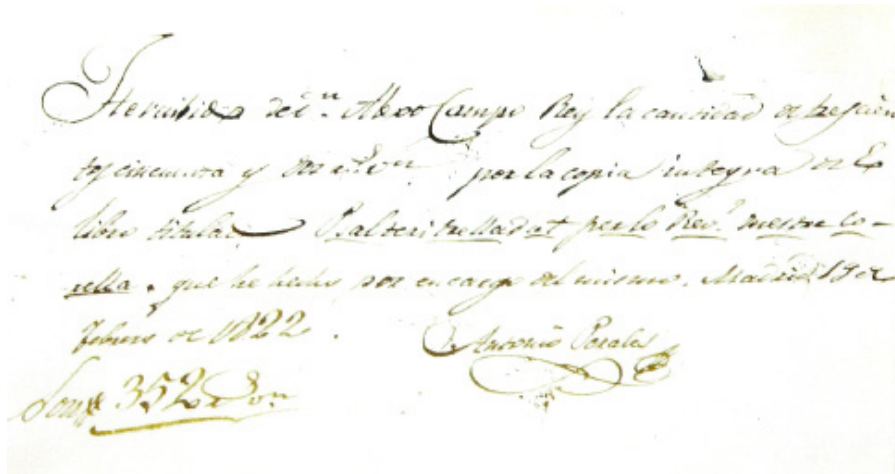 He recibido de Dn. Alvo Campo Rey la cantidad de trescien
tos cincuenta y dos rs. von por la copia integra de
libro titulado Psalteri trelladat per lo Revt. mestre Co-
rella, que he hecho por encargo del mismo. Madrid 19 de
Febrero de 1822.
Antonio Rosales
Son 352 rs. von